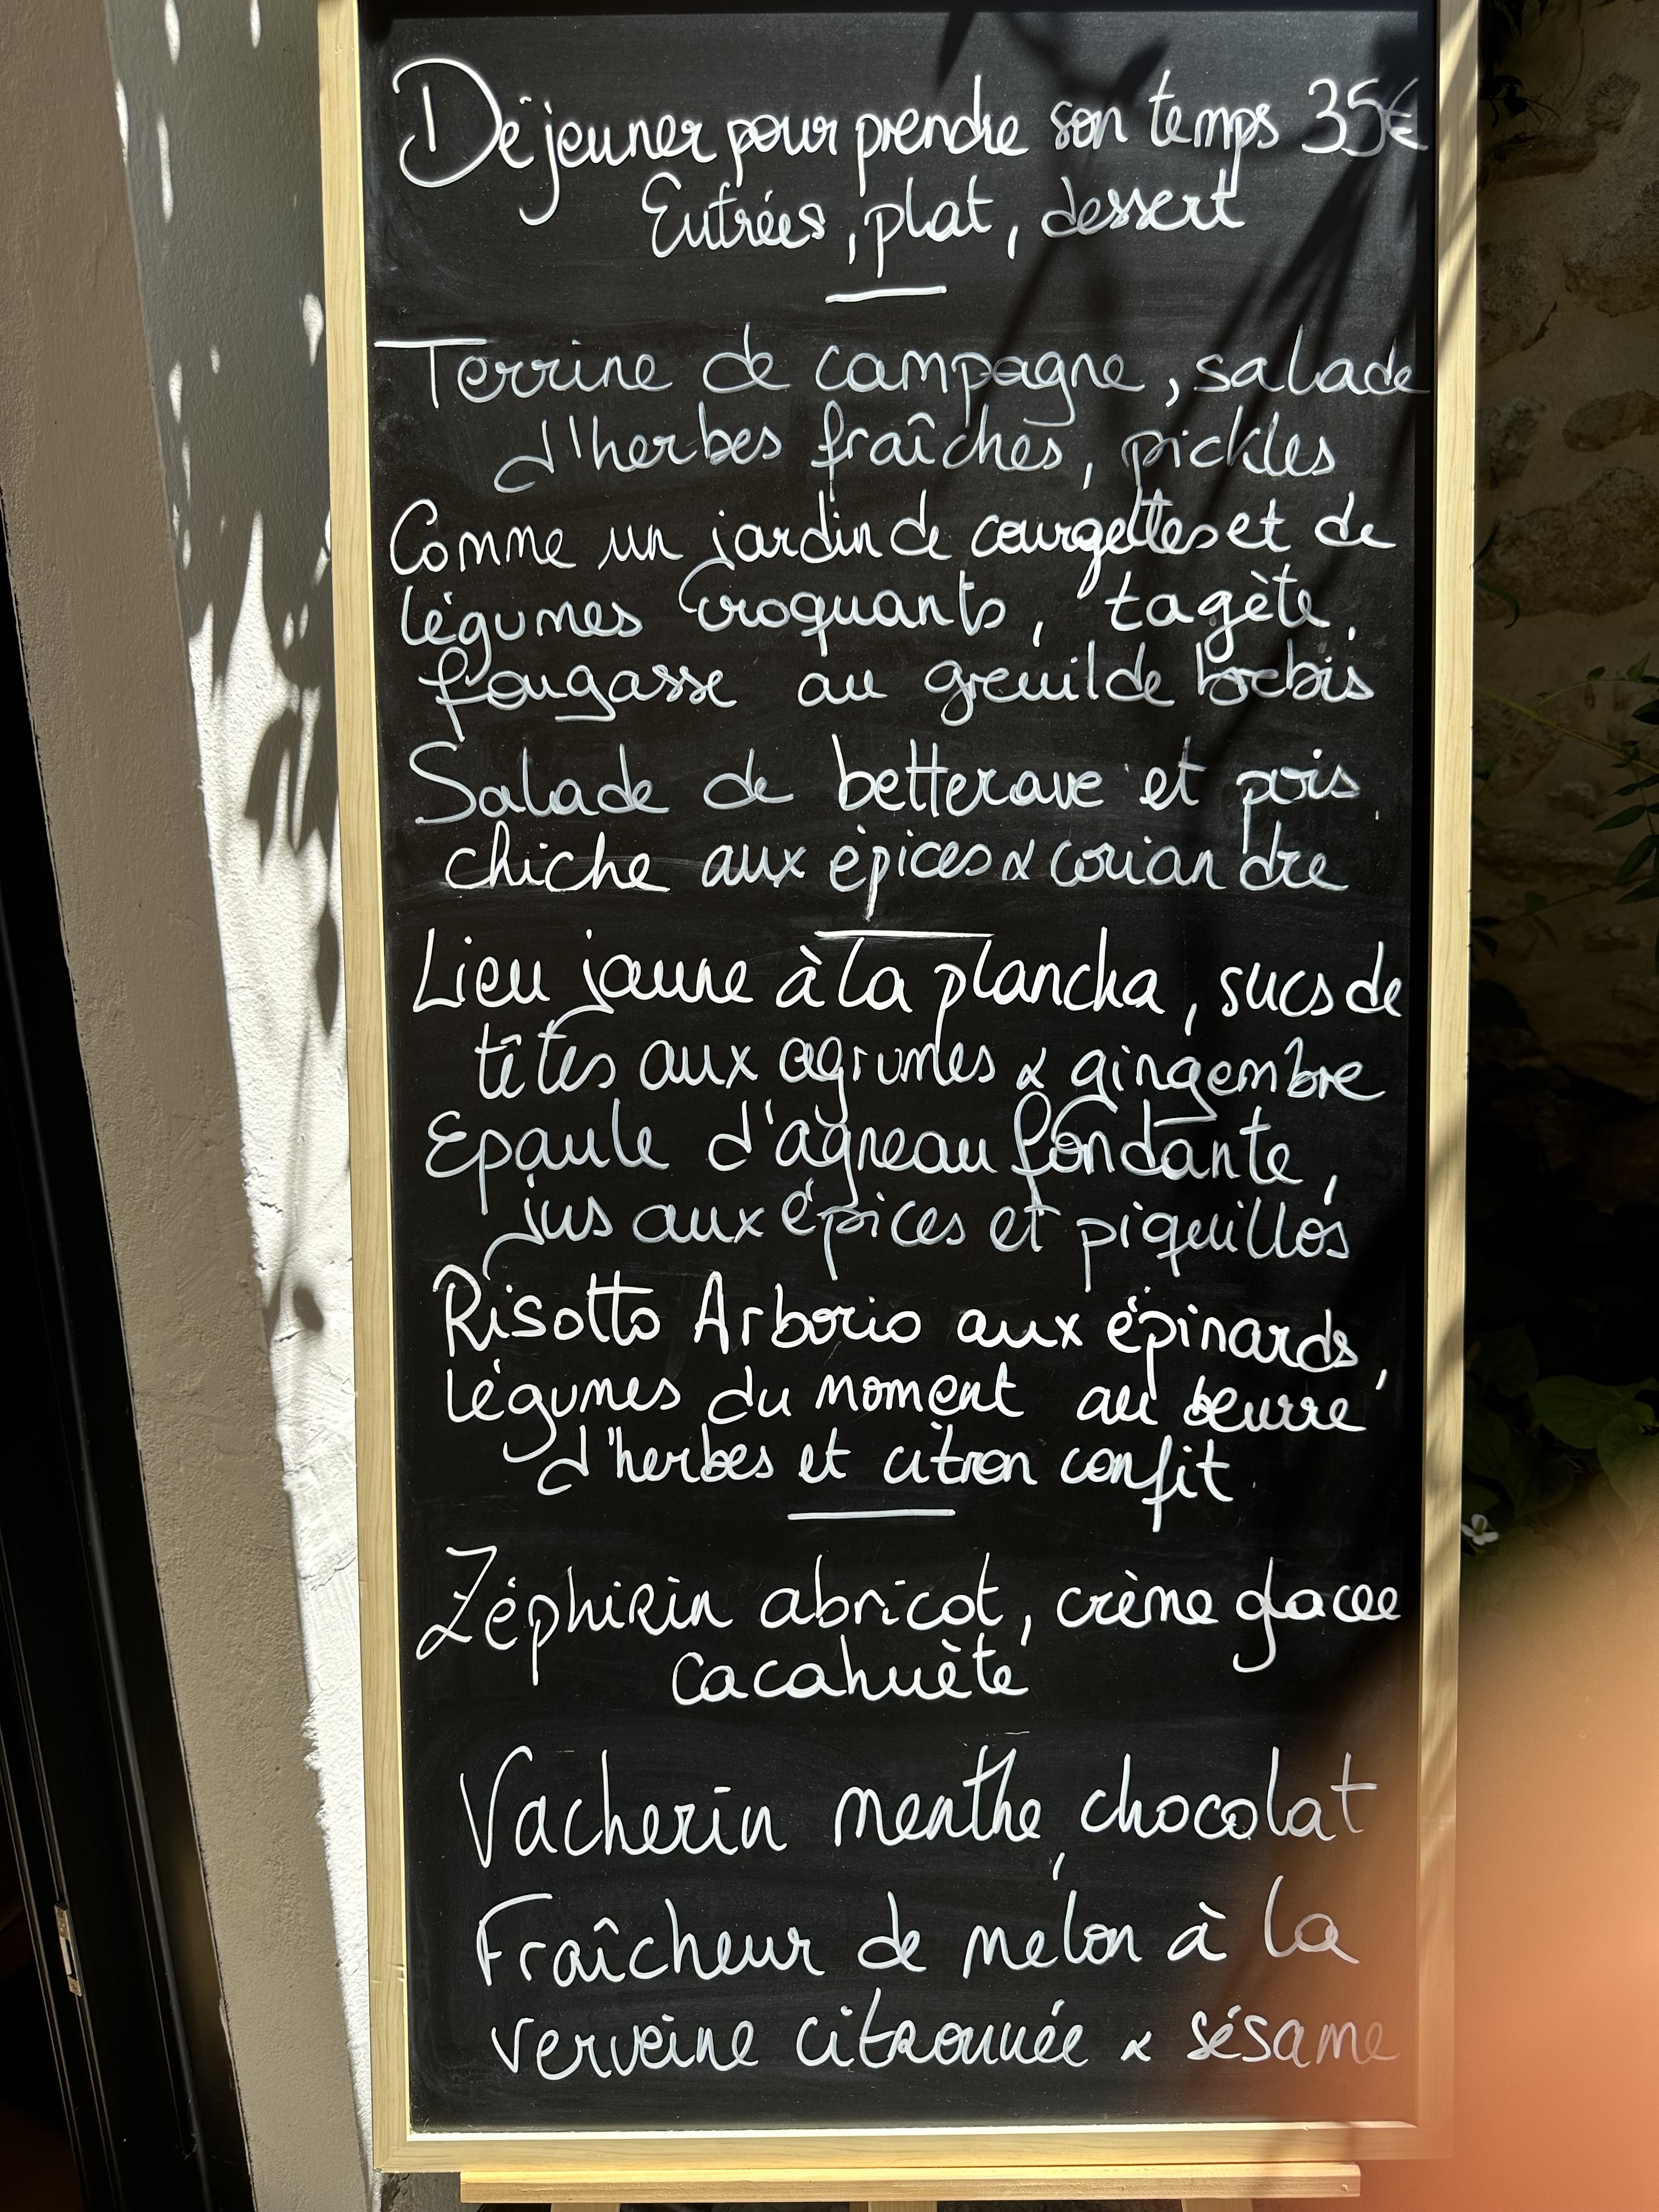 Déjeuner pour prendre son temps 35€
Entrées, plat, dessert
Terrine de campagne, salade
d'herbes fraîches, pickles
Comme un jardin de courgettes et de
légumes croquants, tagète,
fougasse au greuil de brebis
Salade de betterave et pois
chiche aux épices & coriandre
Lieu jaune à la plancha, sucs de
têtes aux agrumes & gingembre
Epaule d'agneau fondante,
jus aux épices et piquillos
Risotto Arborio aux épinards,
légumes du moment au beurre
d'herbes et citron confit
Zéphirin abricot, crème glacée
cacahuète
Vacherin menthe, chocolat
Fraîcheur de melon à la
verveine citronnée & sésame